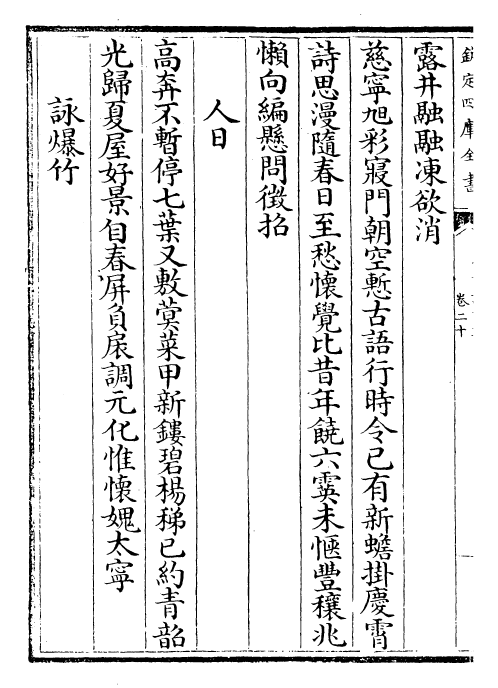 欽定四庫全書
卷二十
露井融融凍欲消
慈寧旭彩寢門朝空慙古語行時令已有新蟾掛慶霄
詩思漫隨春日至愁懷覺比昔年饒六霙未愜豐穰兆
懶向編懸問徵招
人日
高奔不暫停七葉又敷蓂菜甲新鏤碧楊稊已約青韶
光歸夏屋好景自春屏負扆調元化惟懷媿太寧
詠爆竹